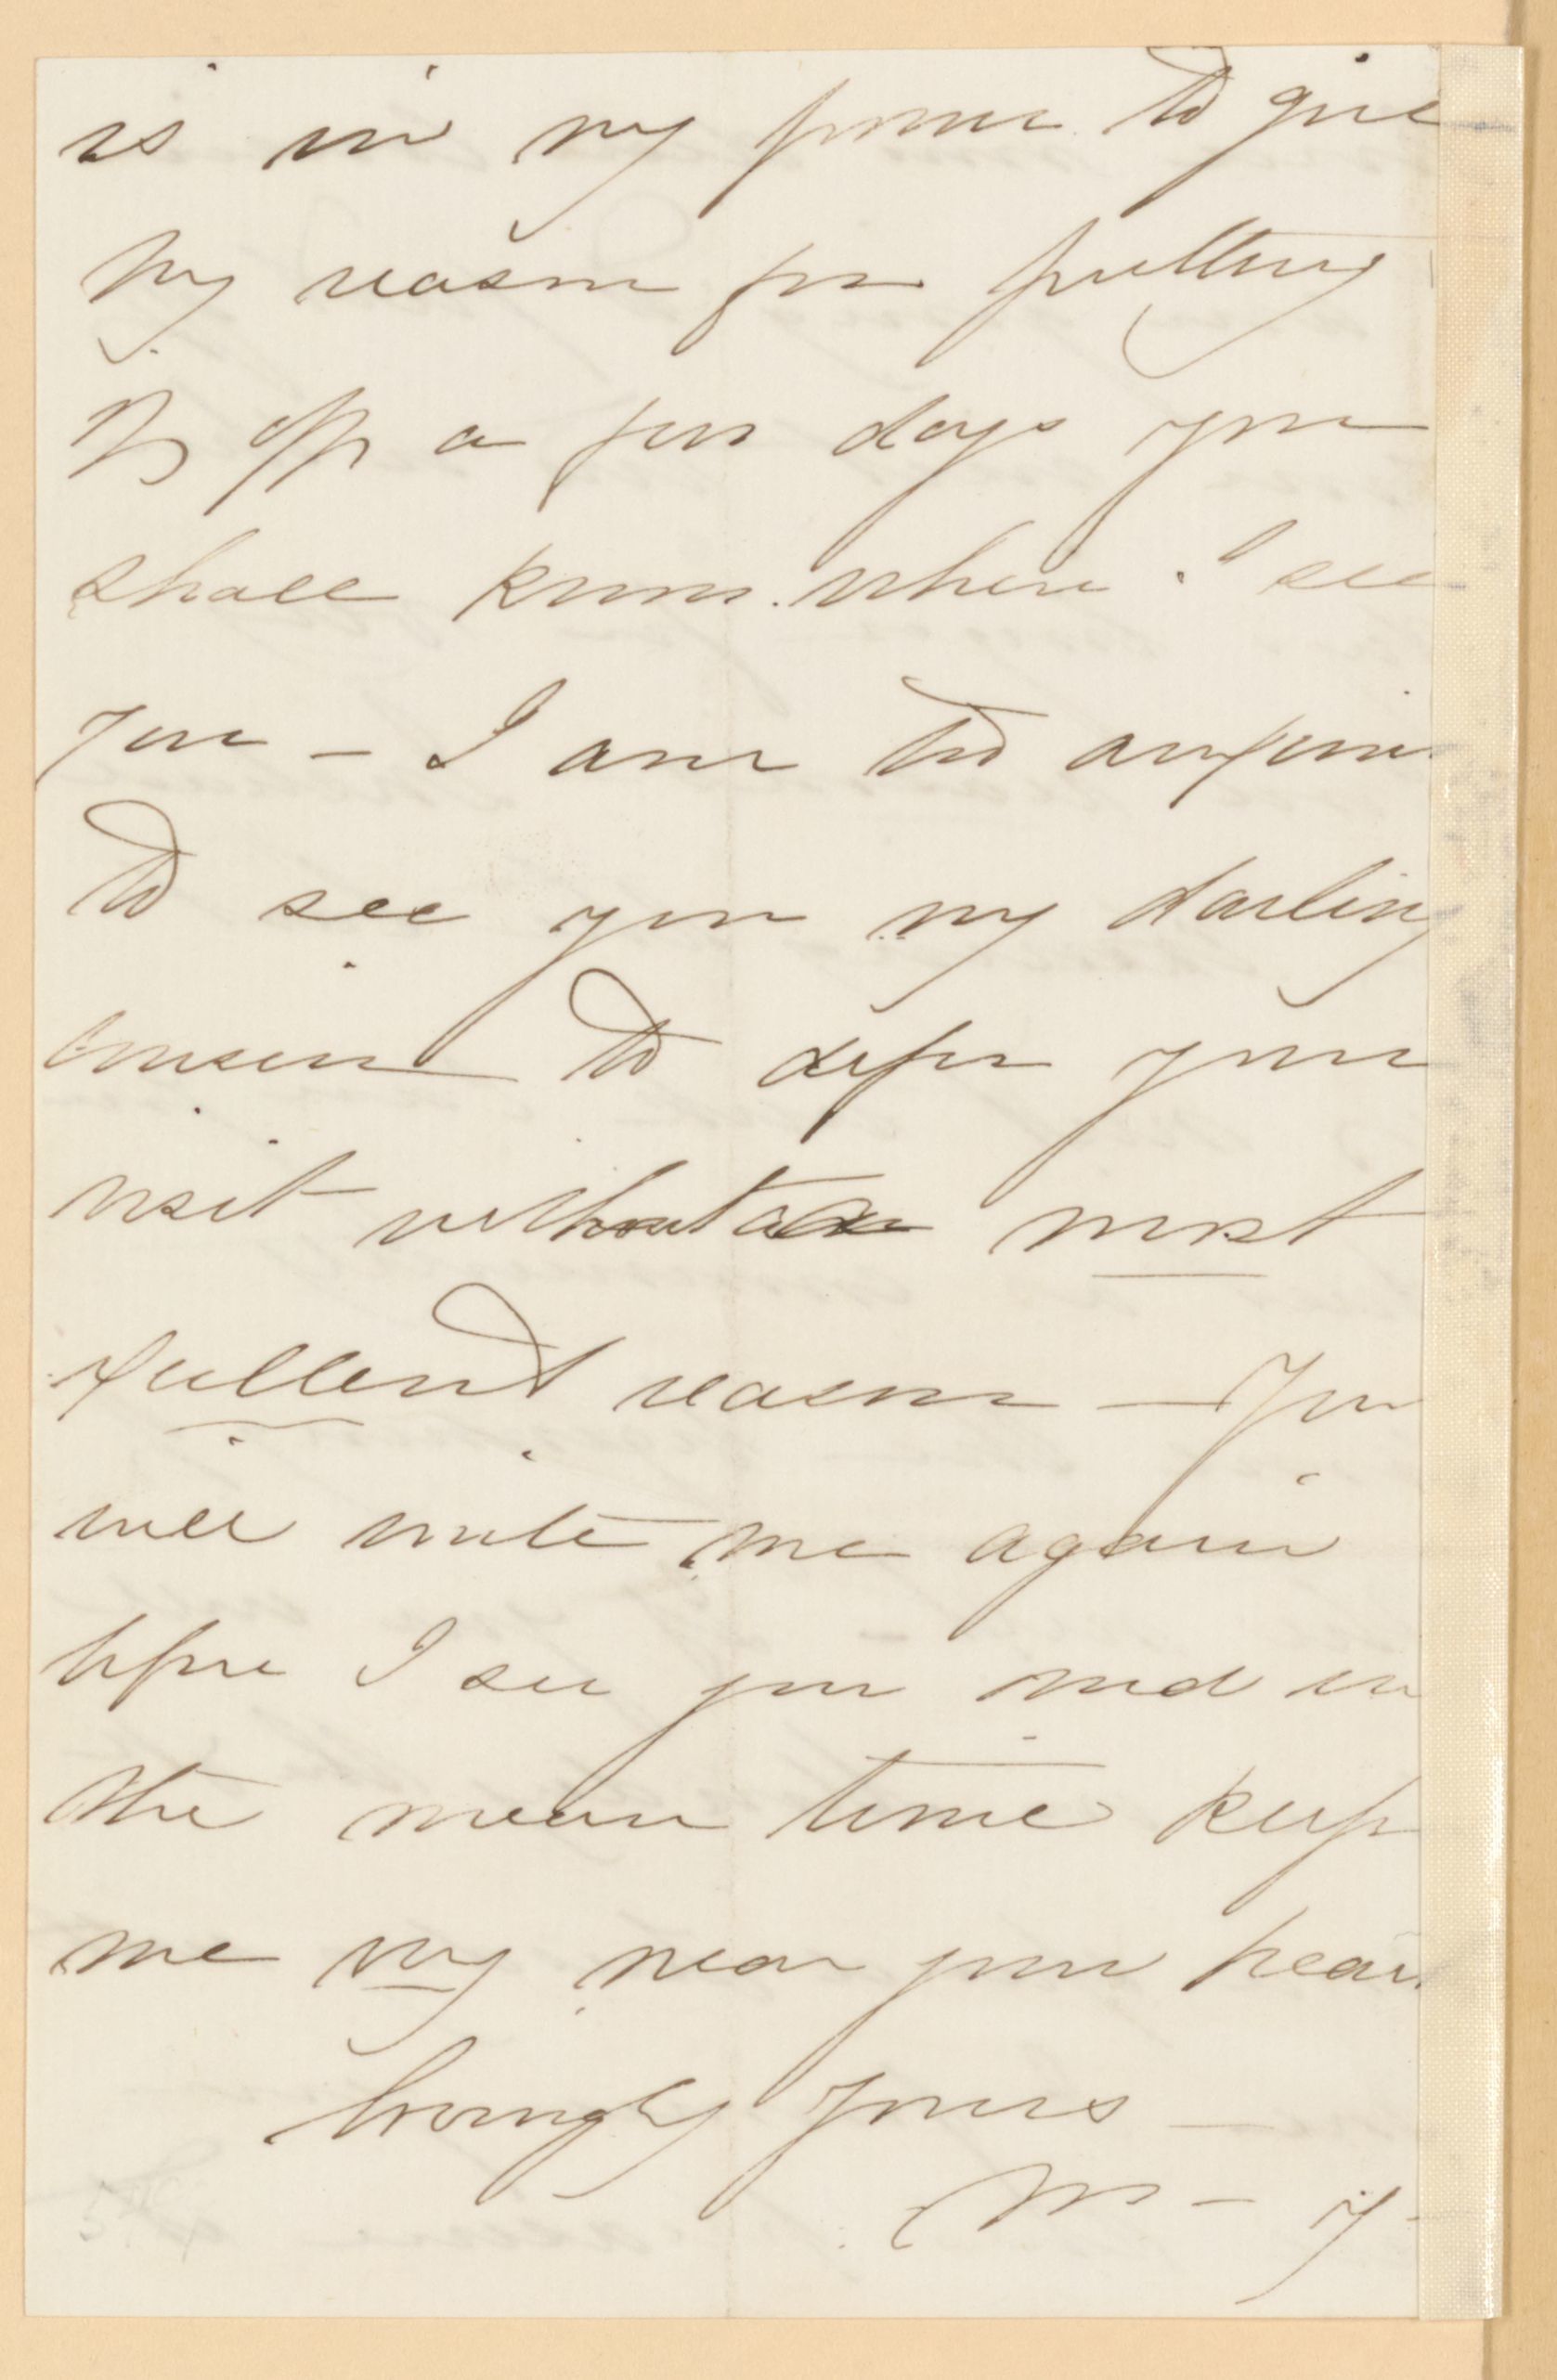 is in my power to give
my reason for putting
off a few days you
shall know when I see
you – I am too anxious
to see you my darling
cousin to defer your
visit without a most
excellent reason – You
will write me again
before I see you and in
the mean time keep
me very near your heart
Lovingly yours –
M – Y